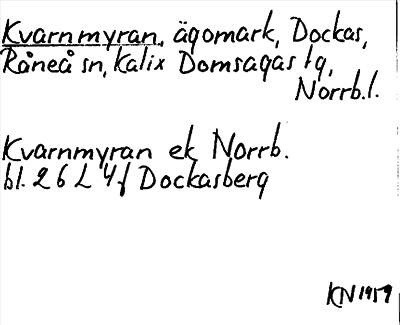 Kvarnmyran, ägomark, Dockas,
Råneå sn, Kalix Domsagas tg,
Norrb.l.
Kvarnmyran ek Norrb.
bl. 26 L 4f Dockasberg
KN 1959